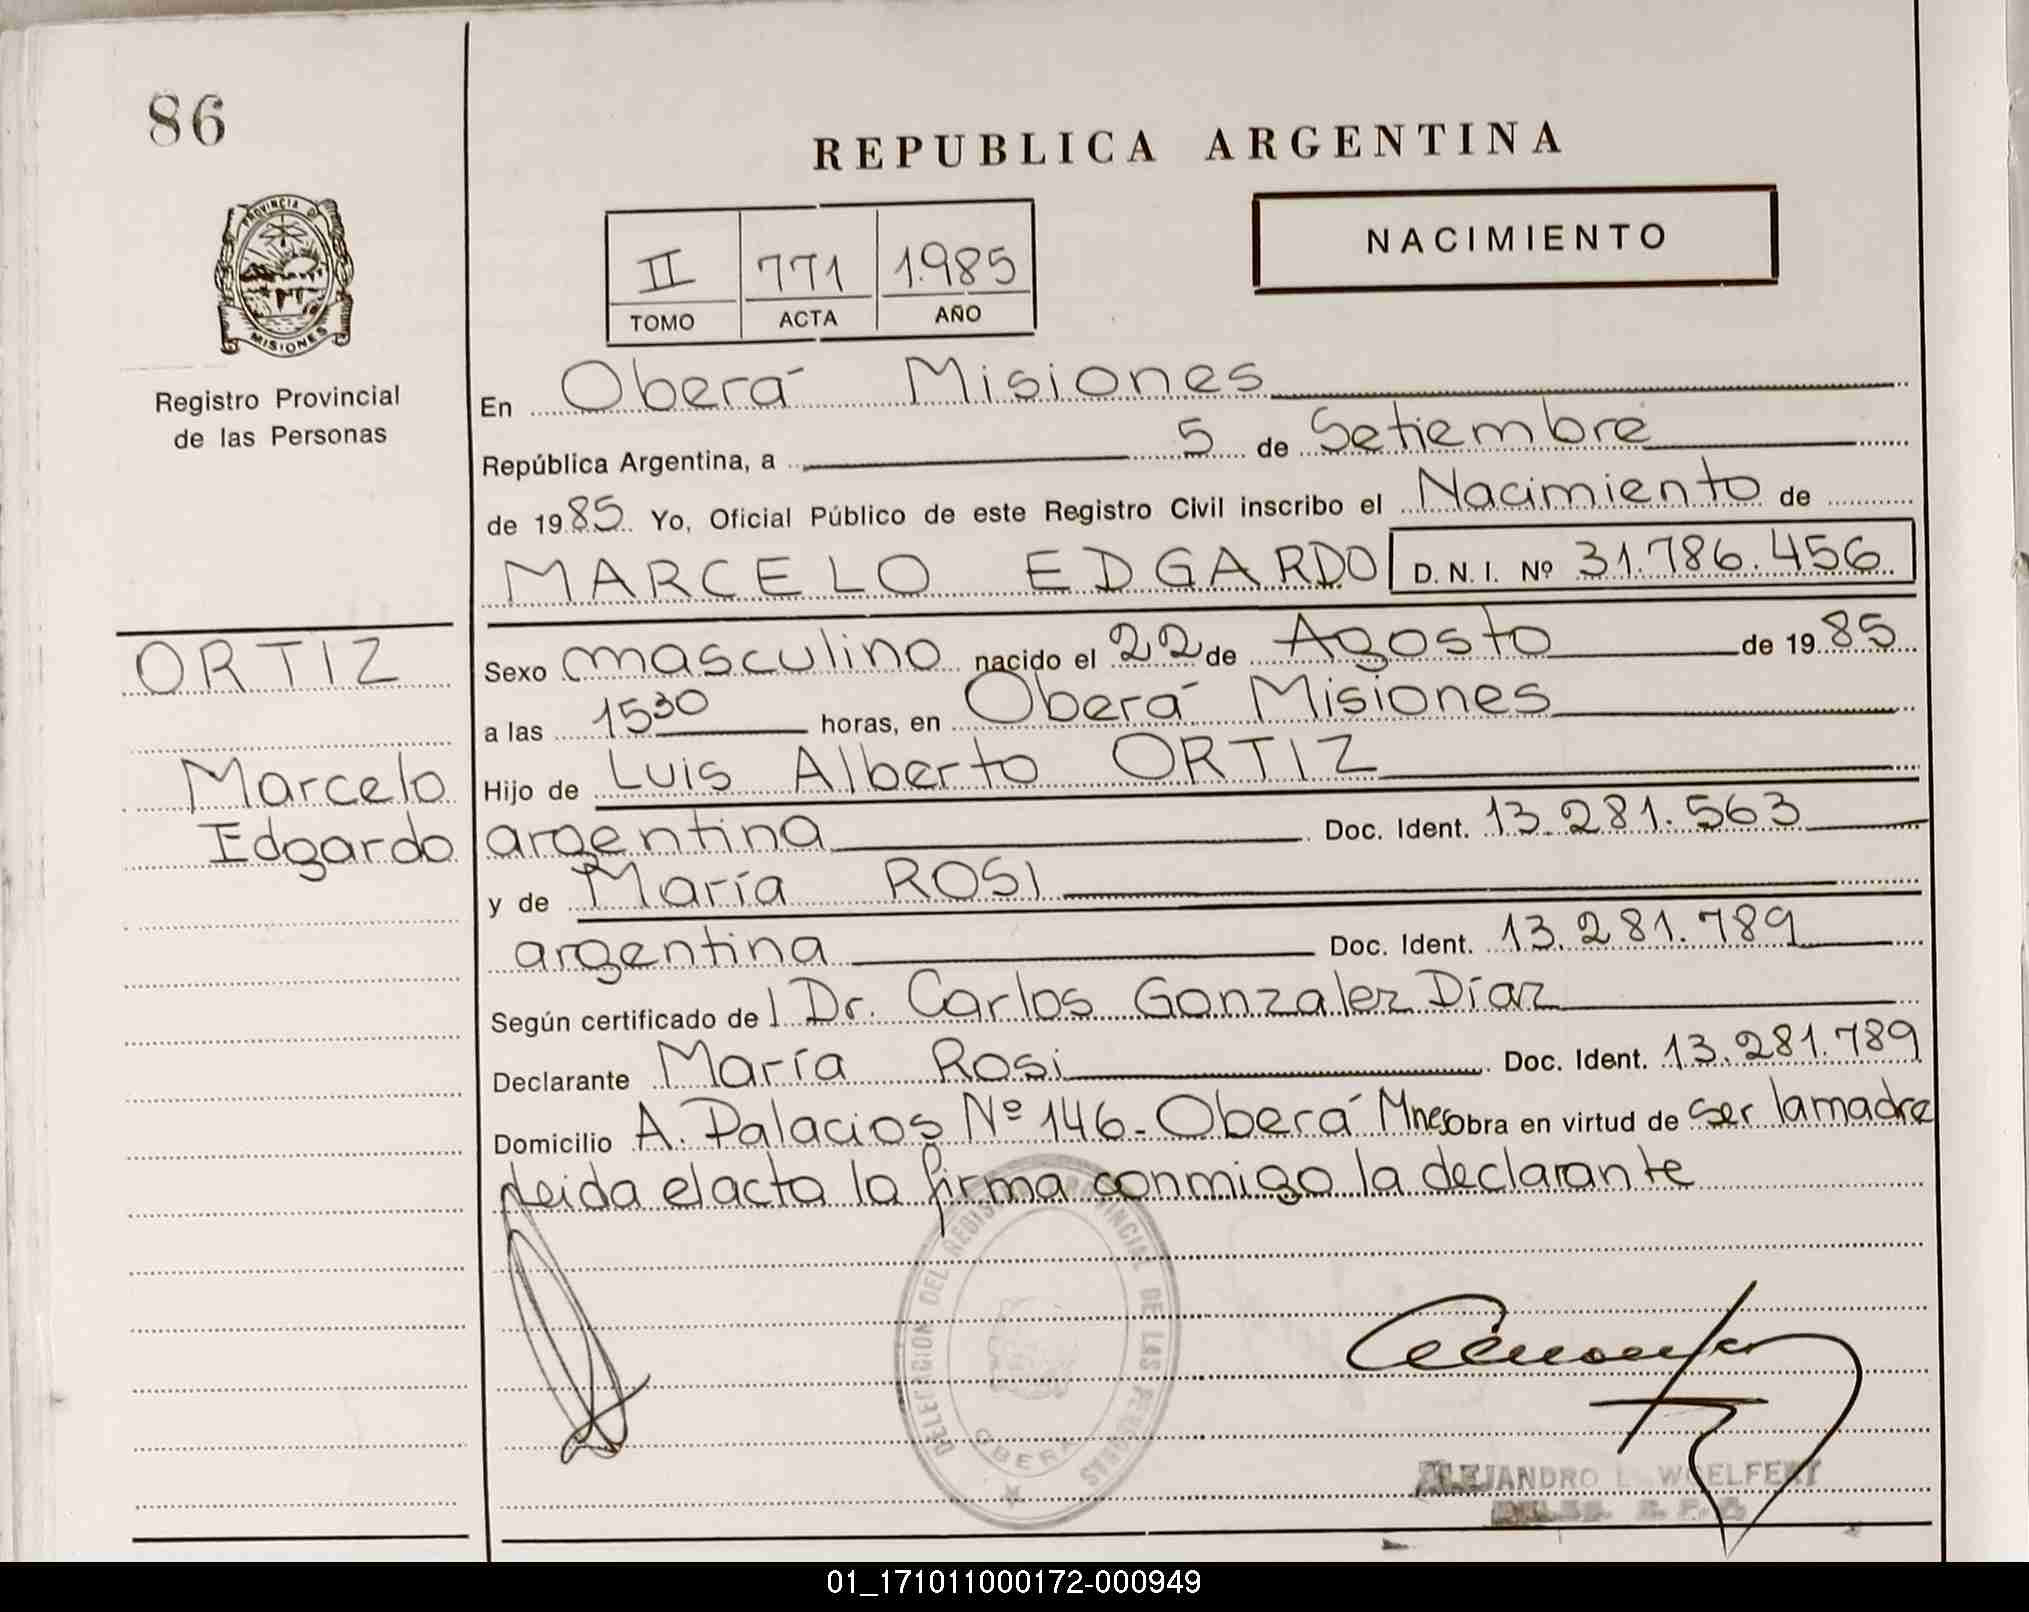 86
REPUBLICA ARGENTINA
PROVINCIA DE
MISIONES
Registro Provincial
de las Personas
II 771 1.985
TOMO ACTA AÑO
NACIMIENTO
En Oberá Misiones
República Argentina, a 5 de Setiembre
de 1985 Yo, Oficial Público de este Registro Civil inscribo el Nacimiento de
MARCELO EDGARDO D. N. I. Nº 31.786.456
ORTIZ
Marcelo
Edgardo
Sexo masculino nacido el 22 de Agosto de 1985
a las 1530 horas, en Oberá Misiones
Hijo de Luis Alberto ORTIZ
argentina Doc. Ident. 13.281.563
y de María ROSI
argentina Doc. Ident. 13.281.789
Según certificado del Dr. Carlos Gonzalez Díaz
Declarante María Rosi Doc. Ident. 13.281.789
Domicilio A. Palacios Nº 146-Oberá Mnes Obra en virtud de ser la madre
leida el acta la firma conmigo la declarante
DELEGACION DEL REGISTRO PROVINCIAL DE LAS PERSONAS
OBERA
ALEJANDRO L. WOELFERT
01_171011000172-000949